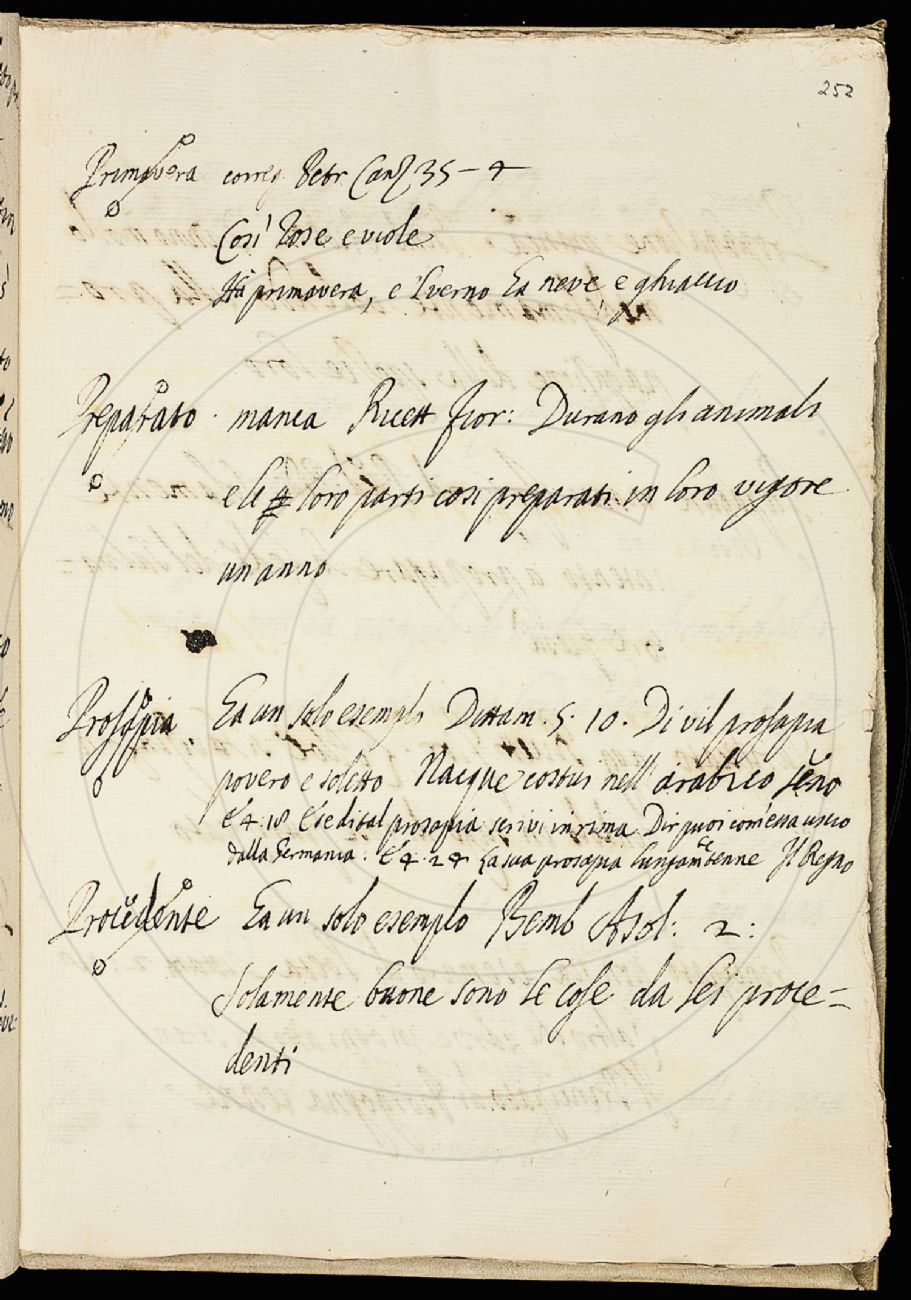 252
Primavera correg. Petr. Canz 35 - 4
Così rose e viole
Hà primavera, e l'verno ha neve e ghiaccio
Preparato. manca Ricett fior: Durano gli animali
e le loro parti così preparati in loro vigore
un anno
Prosapia Ha un solo esemplo Dittam. 5. 10. Di vil prosapia
povero e soletto Nacque costui nell'arabico seno
E 4. 18 E se di tal prosapia scrivi in rima Dir puoi com'essa uscio
dalla Germania. E 4. 24 La sua prosapia lungamente tenne Il Regno
Procedente Ha un solo esemplo Bemb Asol: 2:
Solamente buone sono le cose da lei proce=
denti